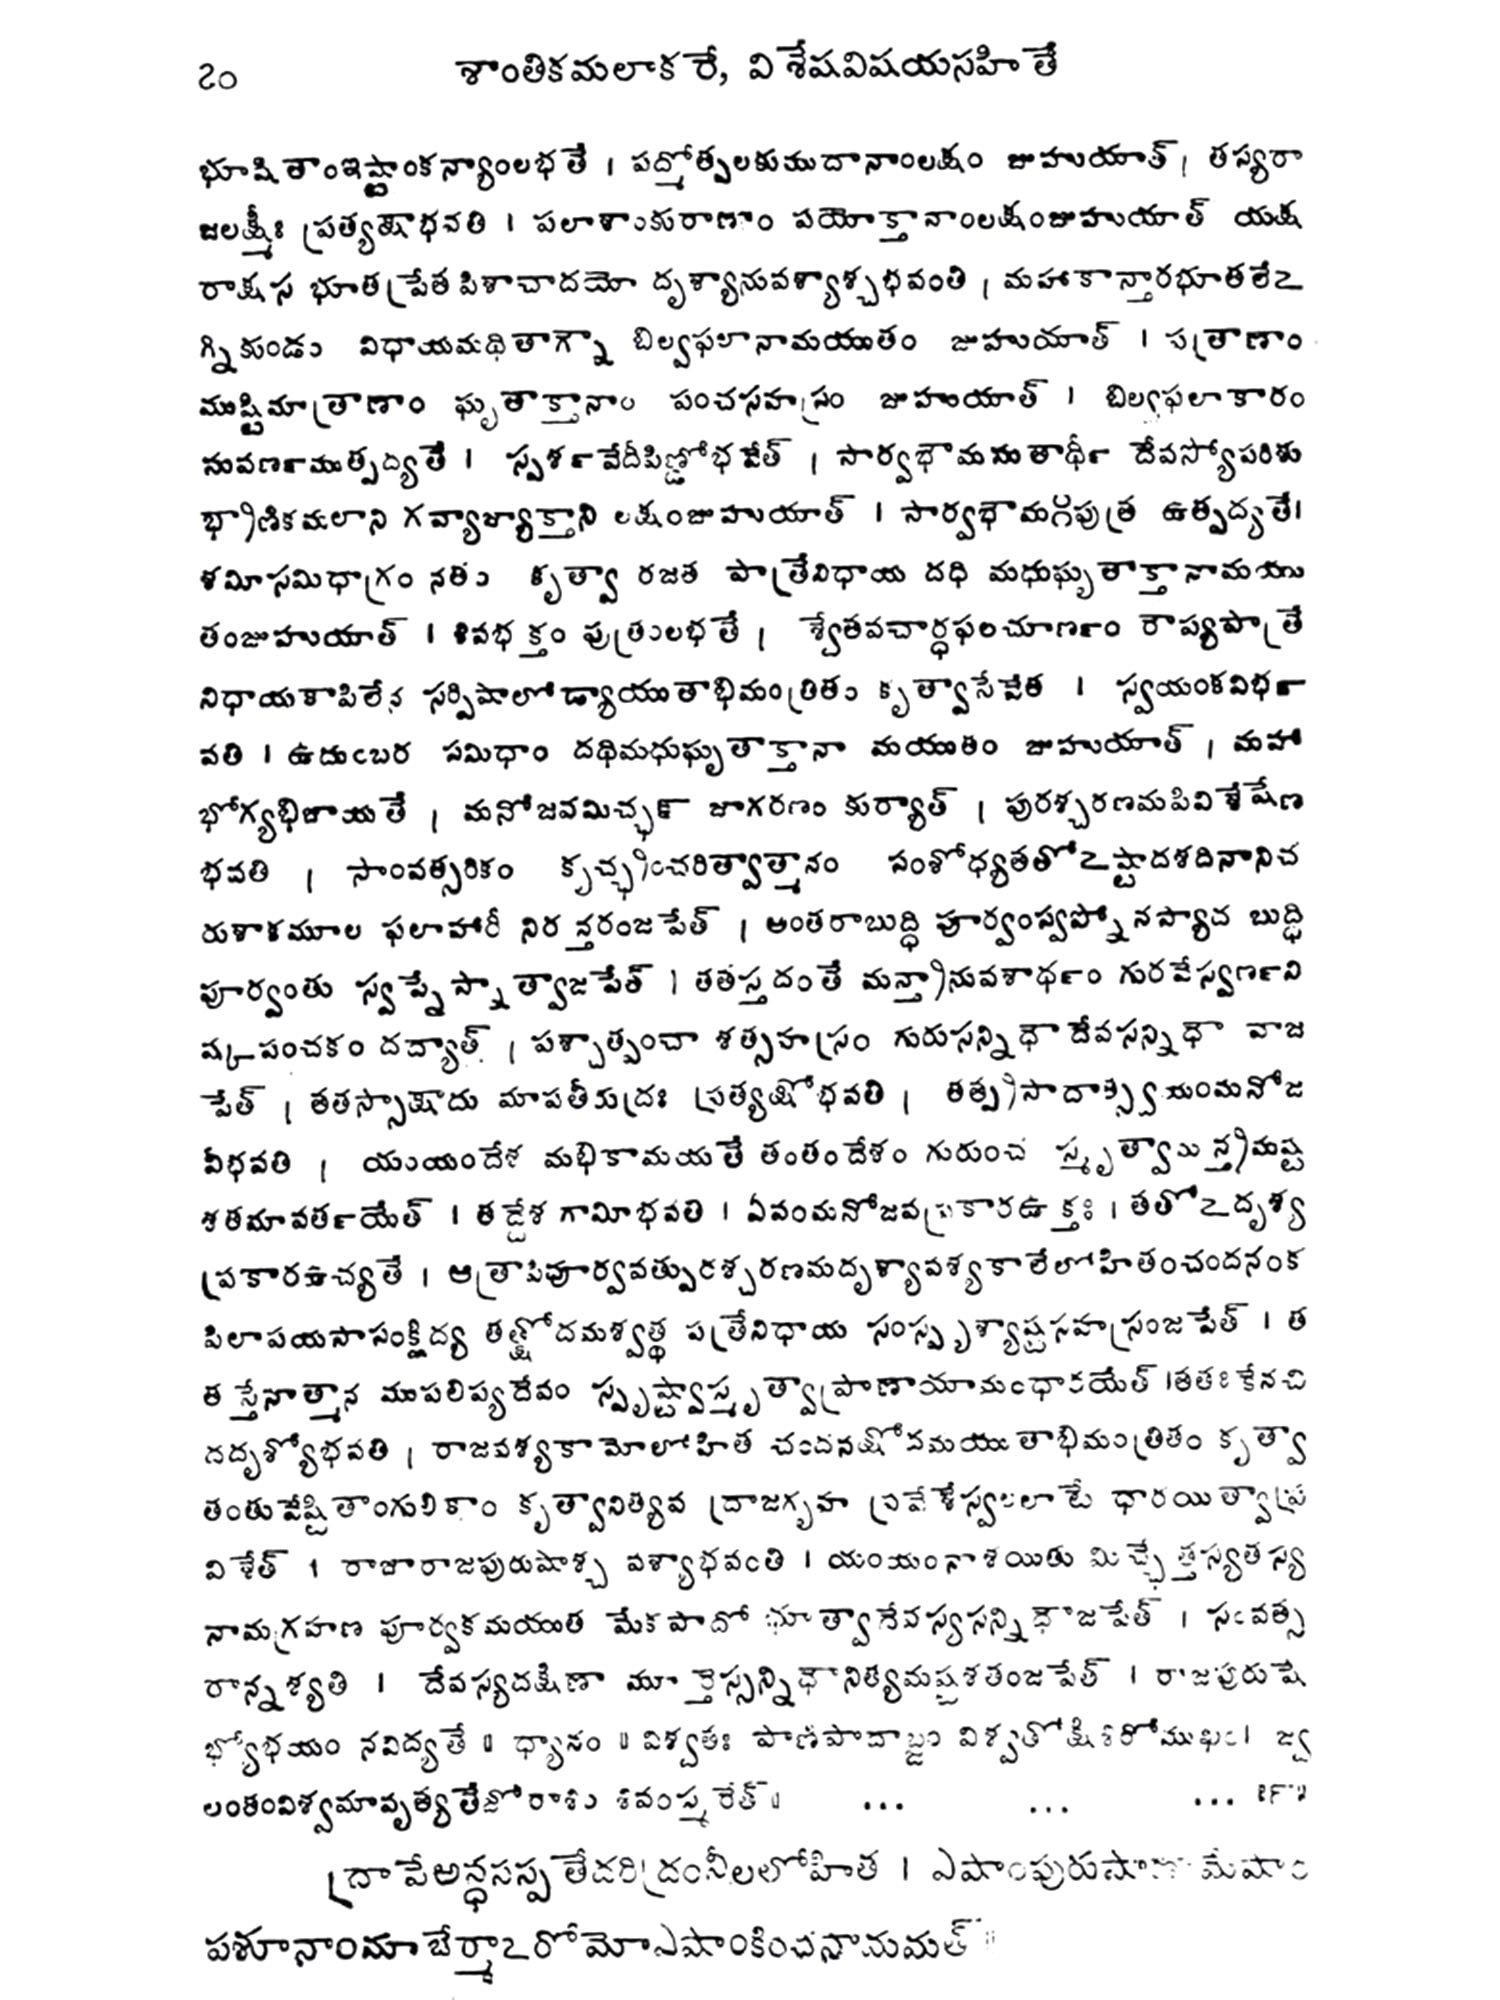 ౭౦ శాంతికమలాకరే, విశేషవిషయసహితే
భూషితాంఇష్టాంకన్యాంలభతే । పద్మోత్పలకుముదానాంలక్షం జుహుయాత్। తస్యరా
జలక్ష్మీః ప్రత్యక్షాభవతి । పలాశాంకురాణాం పయోక్తానాంలక్షంజుహుయాత్ యక్ష
రాక్షస భూతప్రేతపిశాచాదయో దృశ్యానువశ్యాశ్చభవంతి । మహాకాన్తారభూతలేఽ
గ్నికుండం విధాయమథితాగ్నౌ బిల్వఫలానామయుతం జుహుయాత్ । పత్రాణాం
ముష్టిమాత్రాణాం ఘృతాక్తానాం పంచసహస్రం జుహుయాత్ । బిల్వఫలాకారం
సువర్ణముత్పద్యతే । స్పర్శవేదీపిణ్డోభవేత్ । సార్వభౌమసుతార్థీ దేవస్యోపరిశు
భ్రాణికమలాని గవ్యాజ్యాక్తాని లక్షంజుహుయాత్ । సార్వభౌమగ్‍ంపుత్ర ఉత్పద్యతే।
శమీసమిధాగ్రం నతం కృత్వా రజత పాత్రేనిధాయ దధి మధుఘృతాక్తానామయు
తంజుహుయాత్ । శివభక్తం పుత్రంలభతే । శ్వేతవచార్ధఫలచూర్ణం రౌప్యపాత్రే
నిధాయకాపిలేన సర్పిషాలోడ్యాయుతాభిమంత్రితం కృత్వాసేవేత । స్వయంకవిర్భ
వతి । ఉదుంబర సమిధాం దధిమధుఘృతాక్తానా మయుతం జుహుయాత్ । మహా
భోగ్యభిజాయతే । మనోజవమిచ్ఛన్ జాగరణం కుర్యాత్ । పురశ్చరణమపివిశేషేణ
భవతి । సాంవత్సరికం కృచ్ఛ్రంచరిత్వాత్మానం సంశోధ్యతతోఽష్టాదశదినానిచ
రుశాకమూల ఫలాహారీ నిరన్తరంజపేత్ । అంతరాబుద్ధి పూర్వంస్వప్నోనస్యాద బుద్ధి
పూర్వంతు స్వప్నేస్నాత్వాజపేత్ । తతస్తదంతే మన్త్రానువశార్థం గురవేస్వర్ణని
ష్కపంచకం దద్యాత్ । పశ్చాత్పంచా శత్సహస్రం గురుసన్నిధౌ దేవసన్నిధౌ వాజ
పేత్ । తతస్సాక్షాదు మాపతీరుద్రః ప్రత్యక్షోభవతి । తత్ప్రసాదాత్స్వయంమనోజ
వీభవతి । యంయందేశ మభికామయతే తంతందేశం గురుంచ స్మృత్వామన్త్రమష్ట
శతమావర్తయేత్ । తద్దేశగామీభవతి । ఏవంమనోజవప్రకారఉక్తః । తతోఽదృశ్య
ప్రకారఉచ్యతే । అత్రాపిపూర్వవత్పురశ్చరణమదృశ్యావశ్యకాలేలోహితంచందనంక
పిలాపయసాసంక్లిద్య తత్క్షోదమశ్వత్థ పత్రేనిధాయ సంస్పృశ్యాష్టసహస్రంజపేత్ । త
త స్తేనాత్మాన ముపలిప్యదేవం స్పృష్ట్వాస్మృత్వాప్రాణాయామంధారయేత్ ।తతఃకేనచి
దదృశ్యోభవతి । రాజవశ్యకామోలోహిత చందనక్షోదమయుతాభిమంత్రితం కృత్వా
తంతువేష్టితాంగులికాం కృత్వానిత్యేవ ద్రాజగృహ ప్రవేశేస్వలలాటే ధారయిత్వాప్ర
విశేత్ । రాజారాజపురుషాశ్చ వశ్యాభవంతి । యంయంనాశయితు మిచ్ఛేత్తస్యతస్య
నామగ్రహణ పూర్వకమయుత మేకపాదో భూత్వాదేవస్యసన్నిధౌజపేత్ । సంవత్స
రాన్నశ్యతి । దేవస్యదక్షిణా మూర్తేస్సన్నిధౌనిత్యమష్టశతంజపేత్ । రాజపురుషే
భ్యోభయం నవిద్యతే ॥ ధ్యానం ॥ విశ్వతః పాణిపాదాబ్జం విశ్వతోక్షిశిరోముఖం। జ్వ
లంతంవిశ్వమావృత్యతేజోరాశిం శివంస్మరేత్॥ ... ... ...
ద్రాపేఅన్ధసస్పతేదరిద్రంనీలలోహిత । ఏషాంపురుషాణామేషాం
పశూనాంమాభేర్మాఽరోమోఏషాంకించనామమత్ ॥